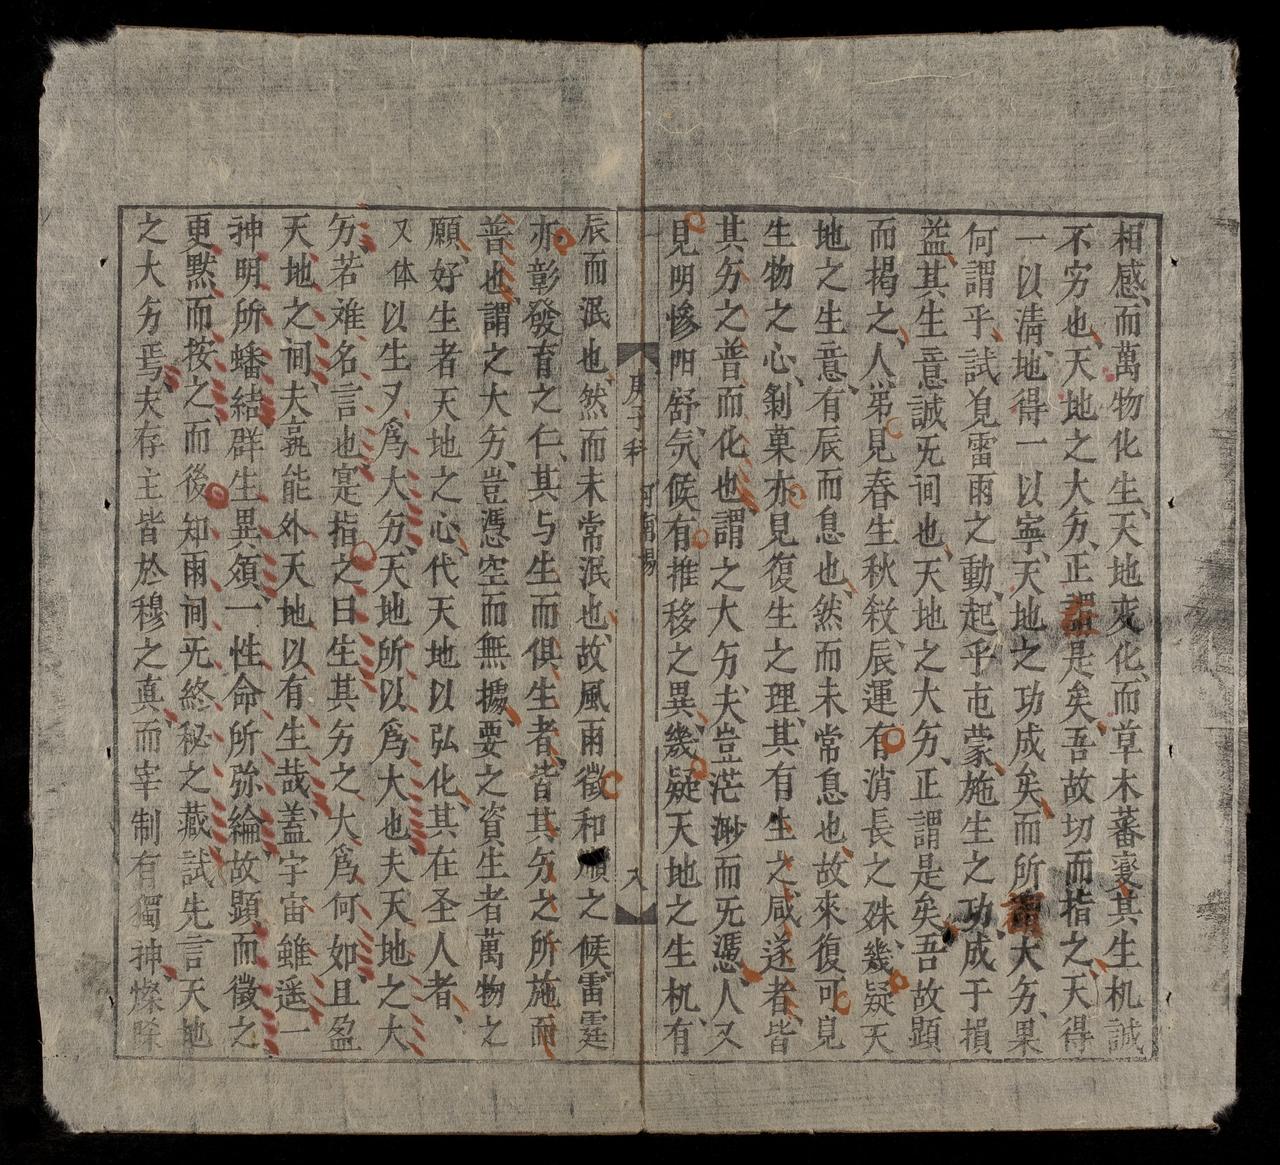 相感、而萬物化生、天地变化、而草木蕃、寔其生机誠
不穷也、天地之大䒚、正謂是矣、吾故切而指之、天得
一以清、地得一以寧、天地之功成矣、而所謂大䒚、果
何謂乎、試覌雷雨之動、起乎屯蒙、施生之功、成于損
益、其生意誠旡间也、天地之大䒚、正謂是矣、吾故顕
而揭之、人苐見春生秋殺、辰運有消長之殊、幾疑天
地之生意、有辰而息也、然而未常息也、故來復可覌
生物之心、剝菓亦見復生之理、其有生之咸遂者、皆
其䒚之普而化也、謂之大䒚、夫豈茫渺而旡憑、人又
見明惨阳舒、気候有推移之異、幾疑天地之生机、有
庚子科 河南場 八
辰而泯也、然而未常泯也、故風雨徵和順之候、雷霆
亦彰發育之仁、其与生而俱生者、皆其䒚之所施而
普也、謂之大䒚、豈憑空而無㨿、要之資生者萬物之
願、好生者天地之心、代天地以弘化、其在圣人者、
又体以生又爲大䒚、天地所以爲大也、夫天地之大
䒚、若难名言也、寔指之曰生、其䒚之大爲何如、且盈
天地之间、夫孰能外天地以有生哉、蓋宇宙雖遥、一
神明所蟠結、群生異類、一性命所弥綸、故顕而徵之
更默而按之、而後知两间旡終秘之藏、試先言天地
之大䒚焉、夫存主皆於穆之真、而宰制有獨神、燦